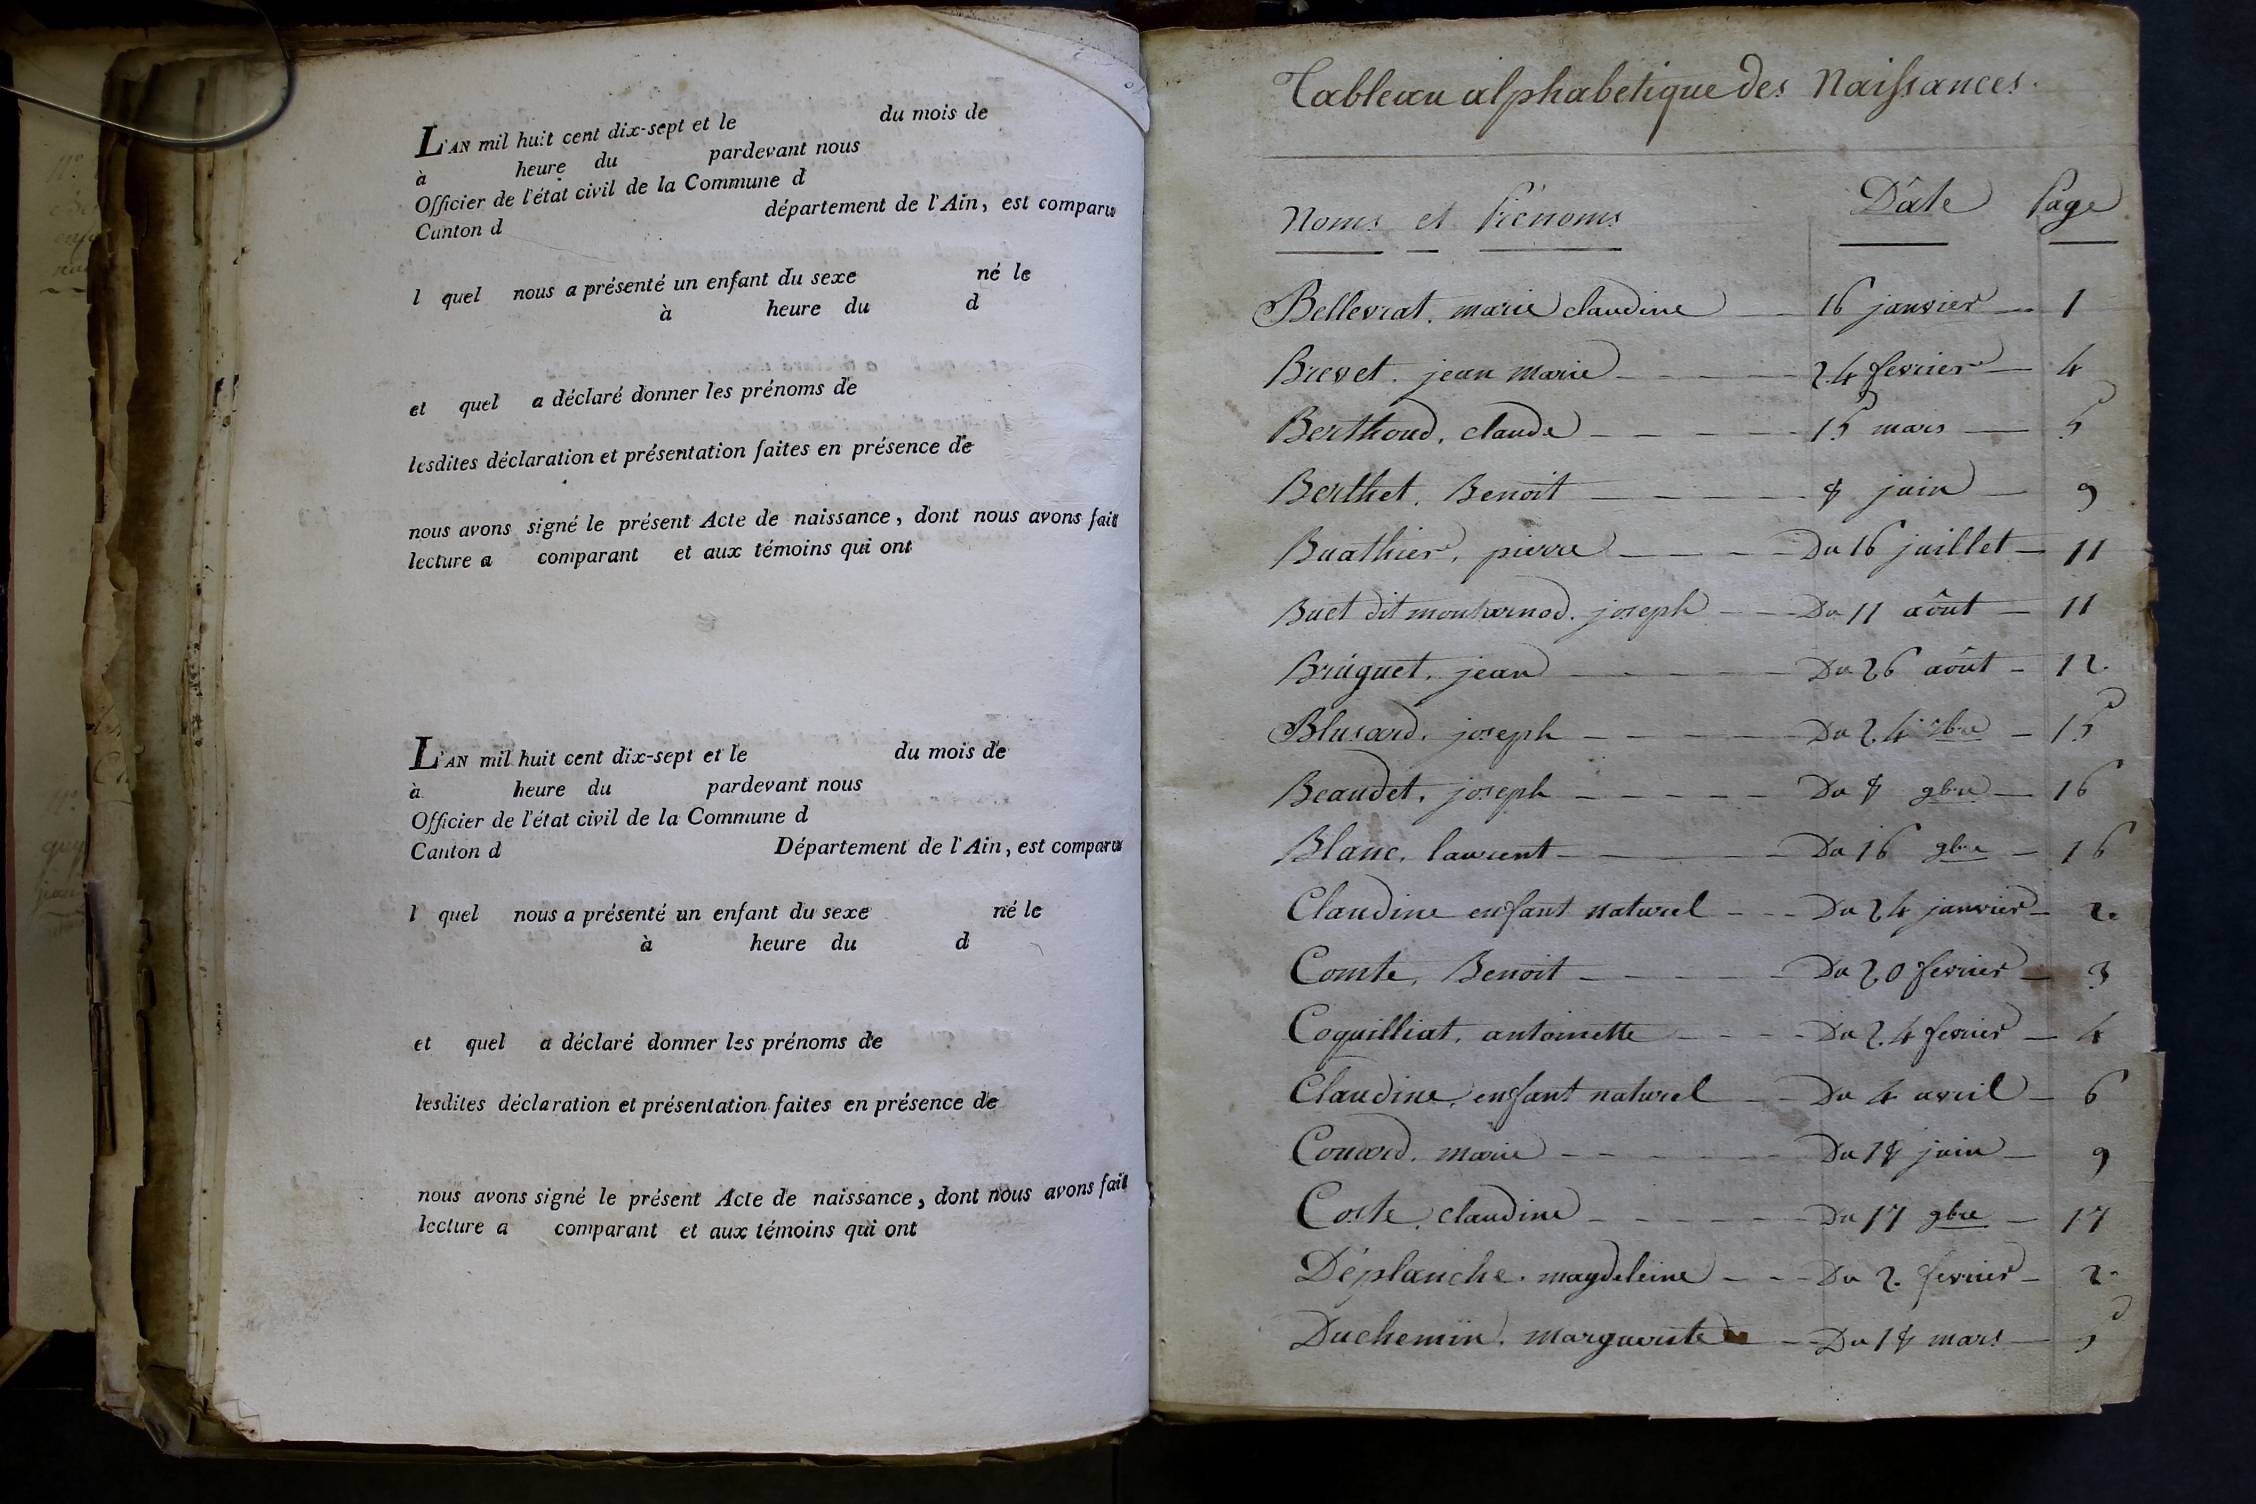 L'AN mil huit cent dix-sept et le du mois de
à heure du pardevant nous
Officier de l'état civil de la Commune d
Canton d département de l'Ain, est comparu
l quel nous a présenté un enfant du sexe né le
à heure du d
et quel a déclaré donner les prénoms de
lesdites déclaration et présentation faites en présence de
nous avons signé le présent Acte de naissance, dont nous avons fait
lecture a comparant et aux témoins qui ont
L'AN mil huit cent dix-sept et le du mois de
à heure du pardevant nous
Officier de l'état civil de la Commune d
Canton d Département de l'Ain, est comparu
l quel nous a présenté un enfant du sexe né le
à heure du d
et quel a déclaré donner les prénoms de
lesdites déclaration et présentation faites en présence de
nous avons signé le présent Acte de naissance, dont nous avons fait
lecture a comparant et aux témoins qui ont
Tableau alphabetique des Naissances.
Noms et Prénoms Date Page
Bellevrat. marie claudine 16 janvier 1
Brevet. jean marie 24 fevrier 4
Berthoud, claude 15 mars 5
Berthet, Benoit 8 juin 9
Buathier, pierre Du 16 juillet 11
Buet dit joseph Du 11 août 11
Bruguet, jean Du 26 août 12.
Blusard, joseph Du 24 15
Beaudet, joseph Du 8 9bre 16
Blanc, laurent Du 16 9bre 16
Claudine enfant naturel Du 24 janvier 2.
Comte, Benoit Du 20 fevrier 3
Coquilliat, antoinette Du 24 fevrier 4
Claudine, enfant naturel Du 4 avril 6
Couard. marie Du 18 juin 9
Coste, claudine Du 17 9bre 17
Déplanche. magdeleine Du 2. fevrier 2.
Duchemin. marguerite Du 18 mars 5